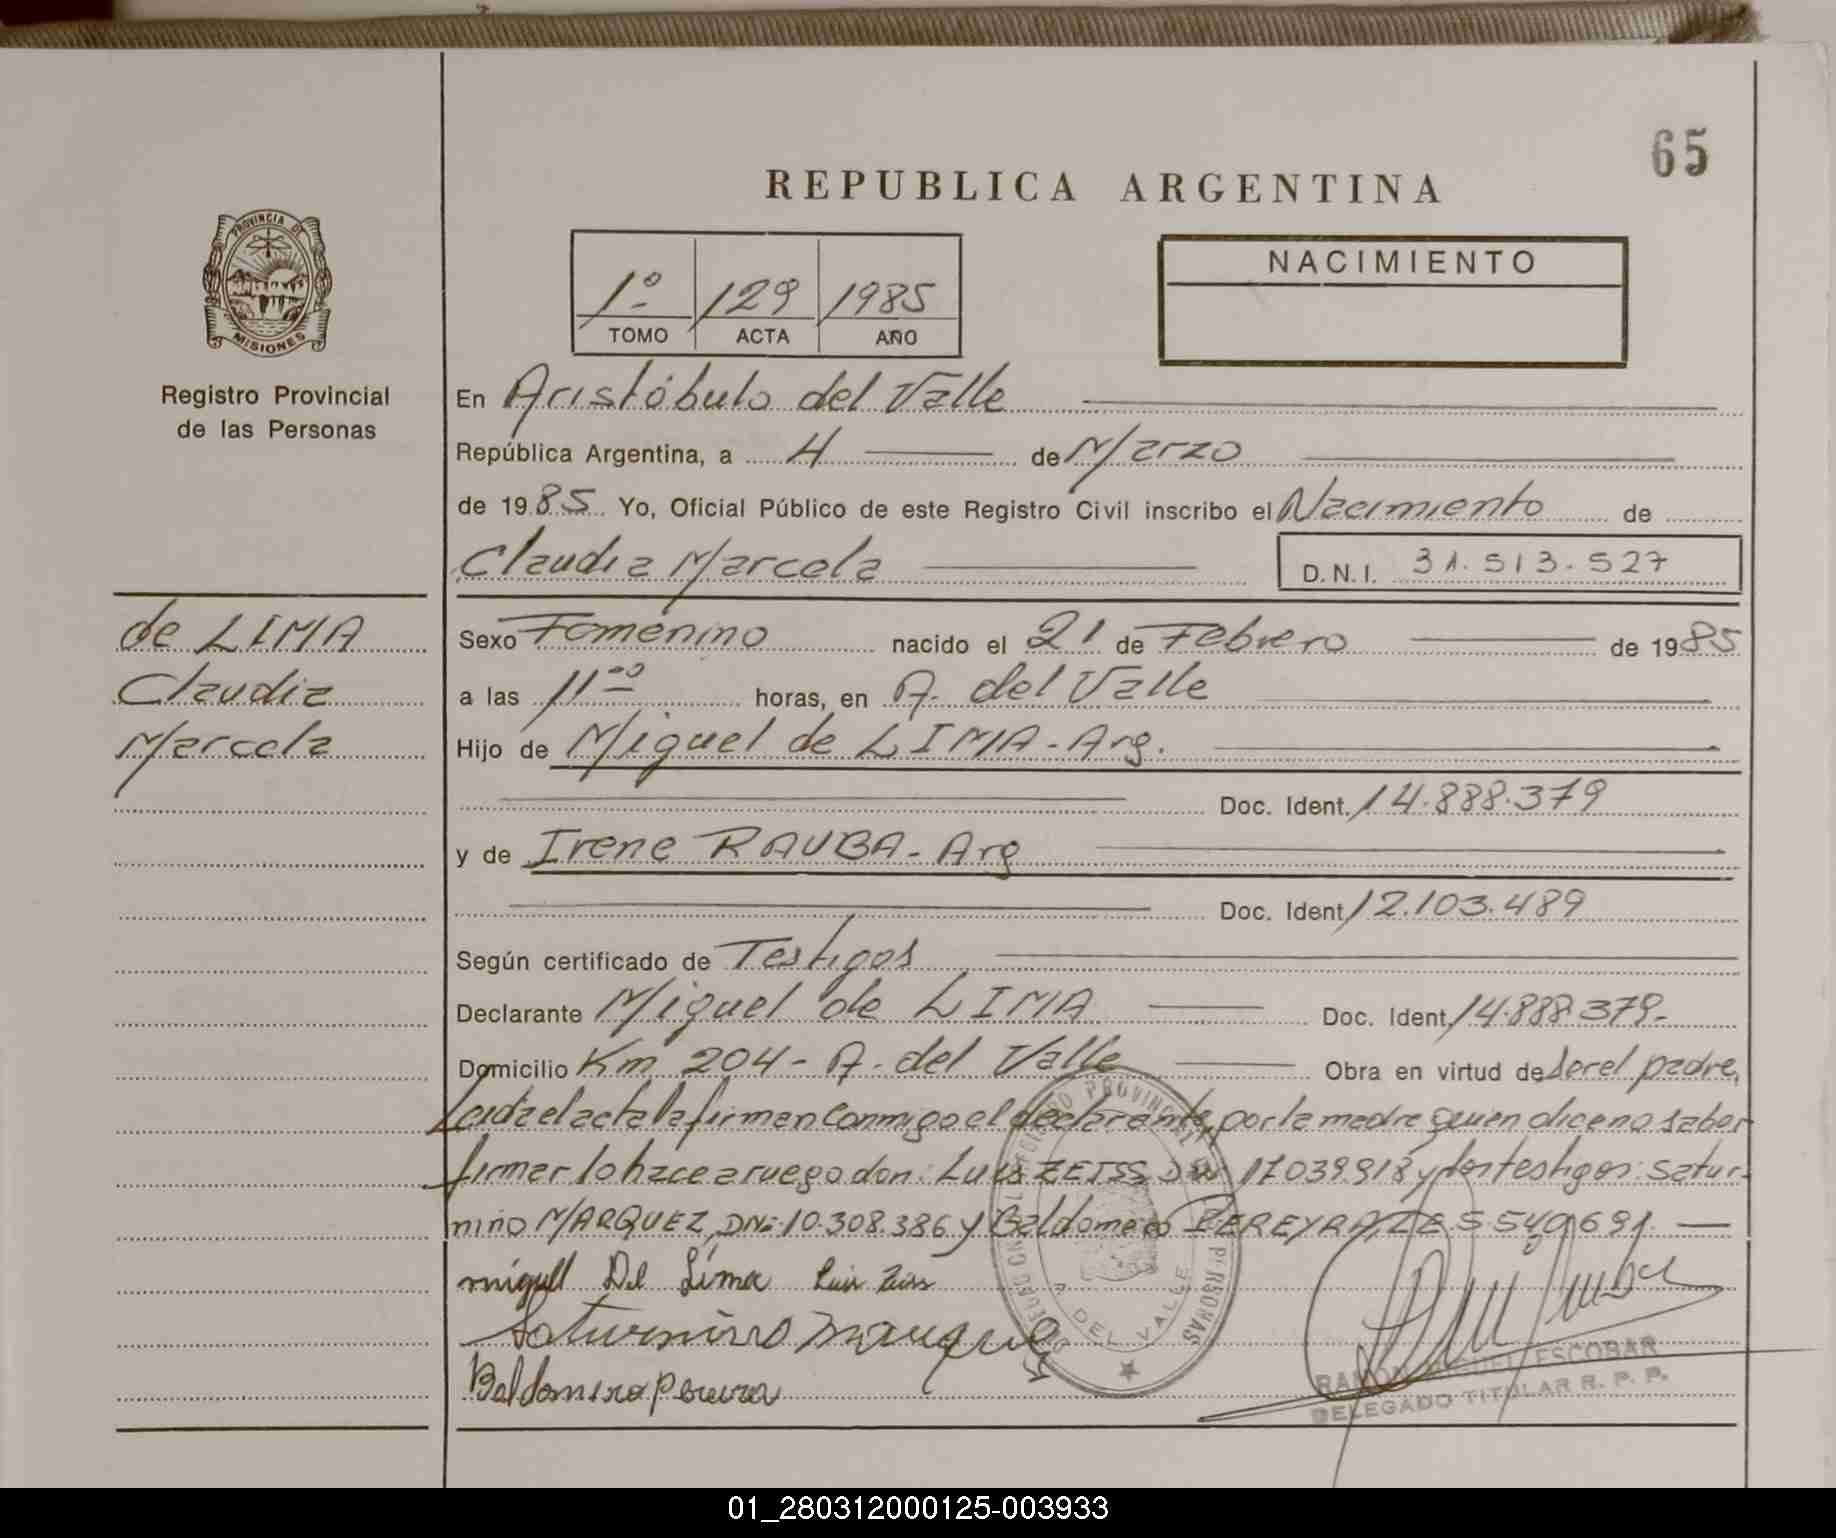 65
REPUBLICA ARGENTINA
1º 129 1985
TOMO ACTA AÑO
NACIMIENTO
PROVINCIA DE
MISIONES
Registro Provincial
de las Personas
En Aristóbulo del Valle
República Argentina, a 4 de Marzo
de 1985 Yo, Oficial Público de este Registro Civil inscribo el Nacimiento de
Claudia Marcela D.N.I. 31.513.527
de LIMA
Claudia
Marcela
Sexo Femenino nacido el 21 de Febrero de 1985
a las 11 00 horas, en A. del Valle
Hijo de Miguel de LIMA - Arg.
Doc. Ident. 14.888.379
y de Irene RAUBA - Arg
Doc. Ident. 12.103.489
Según certificado de Testigos
Declarante Miguel de LIMA Doc. Ident. 14.888.379-
Domicilio Km 204 - A. del Valle Obra en virtud de ser el padre,
Leída el acta la firman conmigo el declarante, por la madre quien dice no saber
firmar lo hace a ruego don: Luis ZEISS 17039.918 y los testigos: Satur-
nino MARQUEZ, DNi 10.308.386 y Baldomero PEREYRA, LE 5540691.
miguel Del Lima Luis Zeiss
Saturnino Marquez
Baldomero Pereira
A. DEL VALLE
RAMON MIGUEL ESCOBAR
DELEGADO TITULAR R. P. P.
01_280312000125-003933